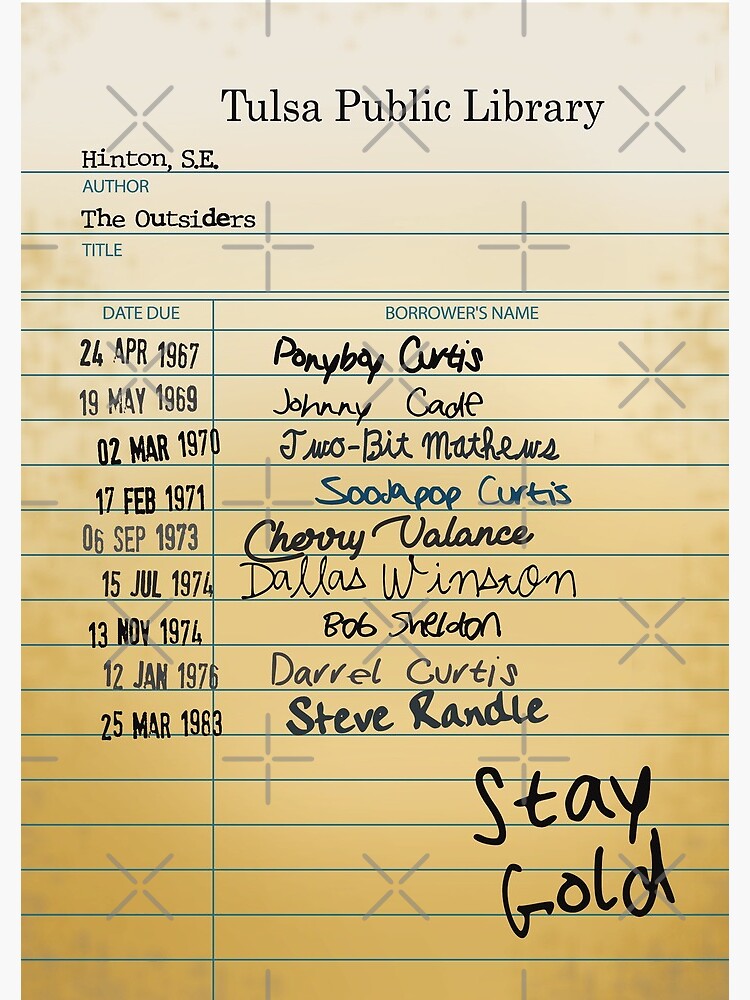 Tulsa Public Library
Hinton, S.E.
AUTHOR
The Outsiders
TITLE
DATE DUE BORROWER'S NAME
24 APR 1967 Ponyboy Curtis
19 MAY 1969 Johnny Cade
02 MAR 1970 Two-Bit Mathews
17 FEB 1971 Sodapop Curtis
06 SEP 1973 Cherry Valance
15 JUL 1974 Dallas Winston
13 NOV 1974 Bob Sheldon
12 JAN 1976 Darrel Curtis
25 MAR 1983 Steve Randle
Stay
Gold